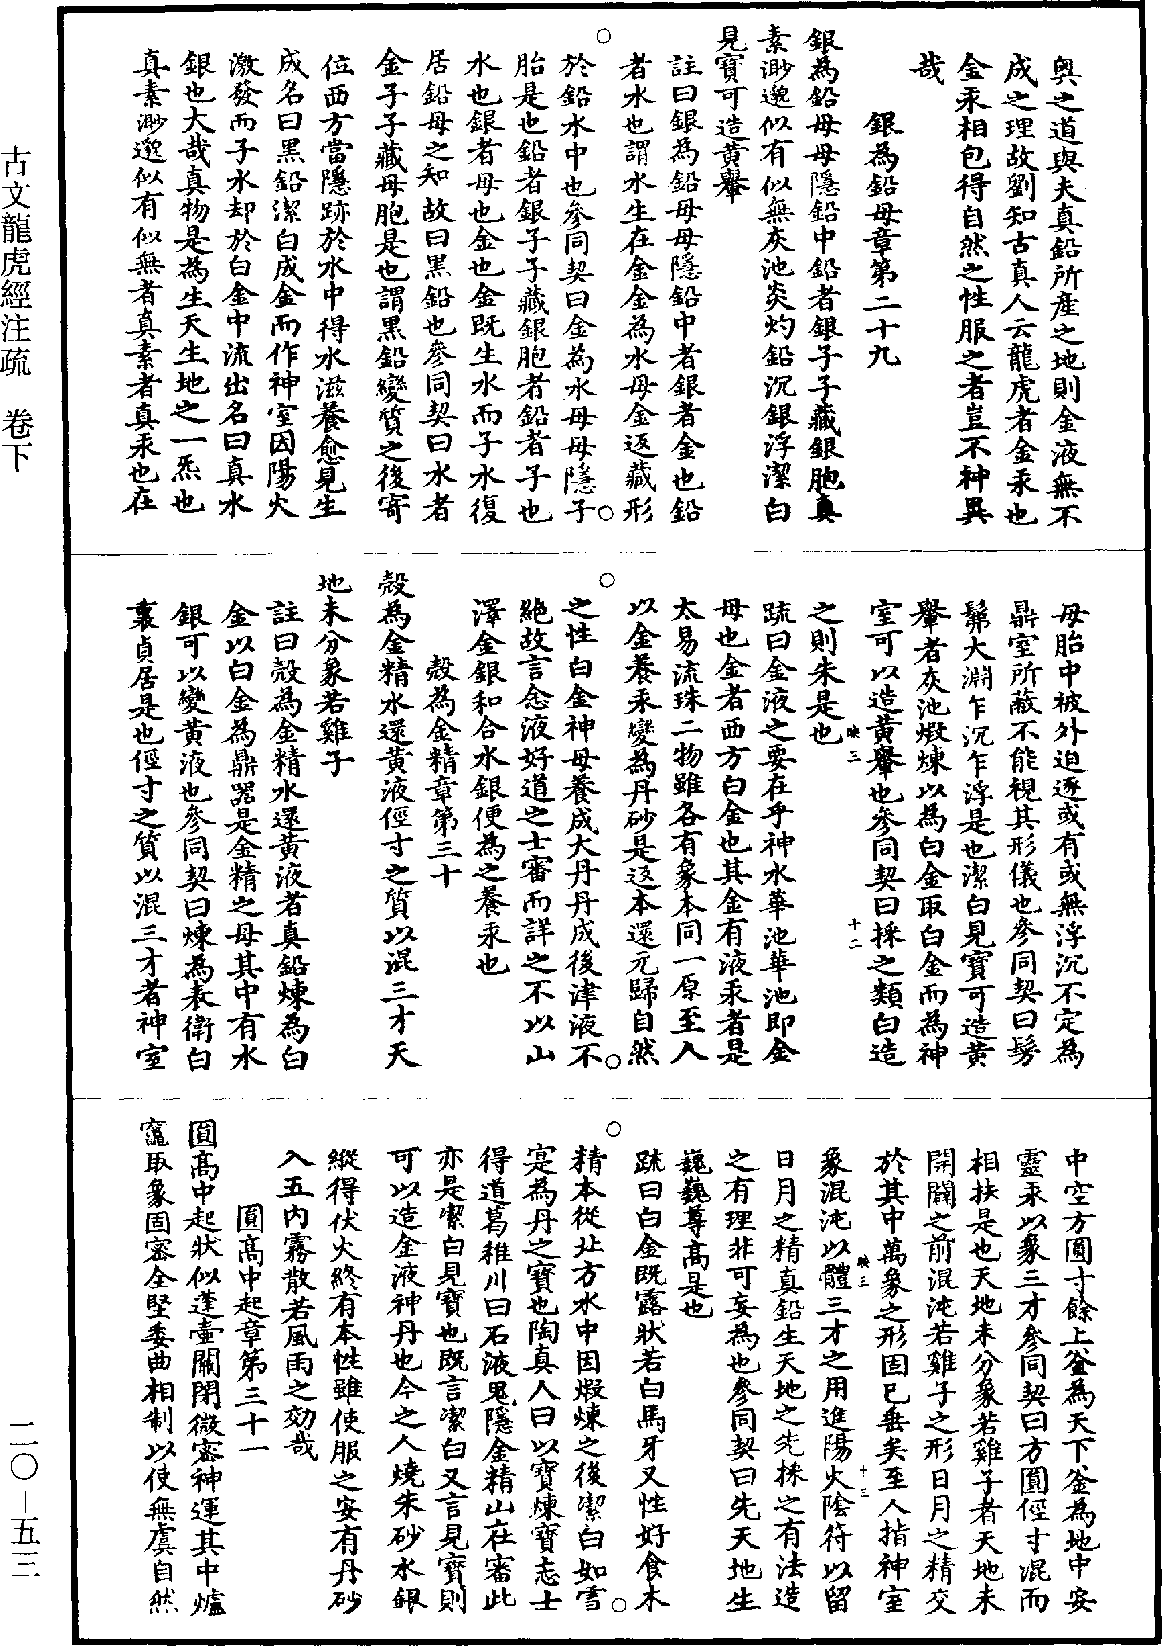 古文龍虎經注疏　卷下
二〇－五三
輿之道與夫真鉛所產之地則金液無不
成之理故劉知古真人云龍虎者金汞也
金汞相包得自然之性服之者豈不神異
哉
銀為鉛母章第二十九
銀為鉛母母隱鉛中鉛者銀子子藏銀胞真
素渺邈似有似無灰池炎灼鉛沉銀浮潔白
見寶可造黃轝
註曰銀為鉛母母隱鉛中者銀者金也鉛
者水也謂水生在金金為水母金返藏形
於鉛水中也參同契曰金為水母母隱子
胎是也鉛者銀子子藏銀胞者鉛者子也
水也銀者母也金也金既生水而子水復
居鉛母之知故曰黑鉛也參同契曰水者
金子子藏母胞是也謂黑鉛變質之後寄
位西方當隱跡於水中得水滋養愈見生
成名曰黑鉛潔白成金而作神室因陽火
激發而子水却於白金中流出名曰真水
銀也大哉真物是為生天生地之一炁也
真素渺邈似有似無者真素者真汞也在
母胎中被外迫逐或有或無浮沉不定為
鼎室所蔽不能視其形儀也參同契曰髣
髴大淵乍沉乍浮是也潔白見寶可造黃
轝者灰池煅煉以為白金取白金而為神
室可以造黃轝也參同契曰採之類白造
之則朱是也
映三
十二
疏曰金液之要在乎神水華池華池即金
母也金者西方白金也其金有液汞者是
太易流珠二物雖各有象本同一原至人
以金養汞變為丹砂是返本還元歸自然
之性白金神母養成大丹丹成後津液不
絕故言念液好道之士審而詳之不以山
澤金銀和合水銀便為之養汞也
殼為金精章第三十
殼為金精水還黃液徑寸之質以混三才天
地未分象若雞子
註曰殼為金精水還黃液者真鉛煉為白
金以白金為鼎器是金精之母其中有水
銀可以變黃液也參同契曰煉為表衛白
裏貞居是也徑寸之質以混三才者神室
中空方圓寸餘上釜為天下釜為地中安
靈汞以象三才參同契曰方圓徑寸混而
相扶是也天地未分象若雞子者天地未
開闢之前混沌若雞子之形日月之精交
於其中萬象之形固已垂矣至人指神室
象混沌以體三才之用進陽火陰符以留
映三
十三
日月之精真鉛生天地之先採之有法造
之有理非可妄為也參同契曰先天地生
巍巍尊高是也
疏曰白金既露狀若白馬牙又性好食木
精本從北方水中因煅煉之後潔白如雪
寔為丹之寶也陶真人曰以寶煉寶志士
得道葛稚川曰石液鬼隱金精山在審此
亦是潔白見寶也既言潔白又言見寶則
可以造金液神丹也今之人燒朱砂水銀
縱得伏火終有本性雖使服之安有丹砂
入五內霧散若風雨之効哉
圓高中起章第三十一
圓高中起狀似蓬壺關閉微密神運其中爐
竈取象固密全堅委曲相制以使無虞自然